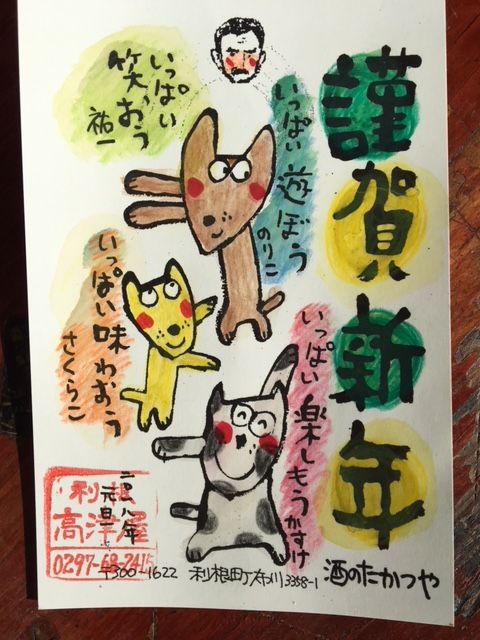 謹賀新年
いっぱい
笑おう
祐一
いっぱい遊ぼう
のりこ
いっぱい味わおう
さくらこ
いっぱい楽しもう
かすけ
二〇一八年
元旦
利根
高津屋
0297-68-2415
〒300-1622 利根町布川3358-1 酒のたかつや